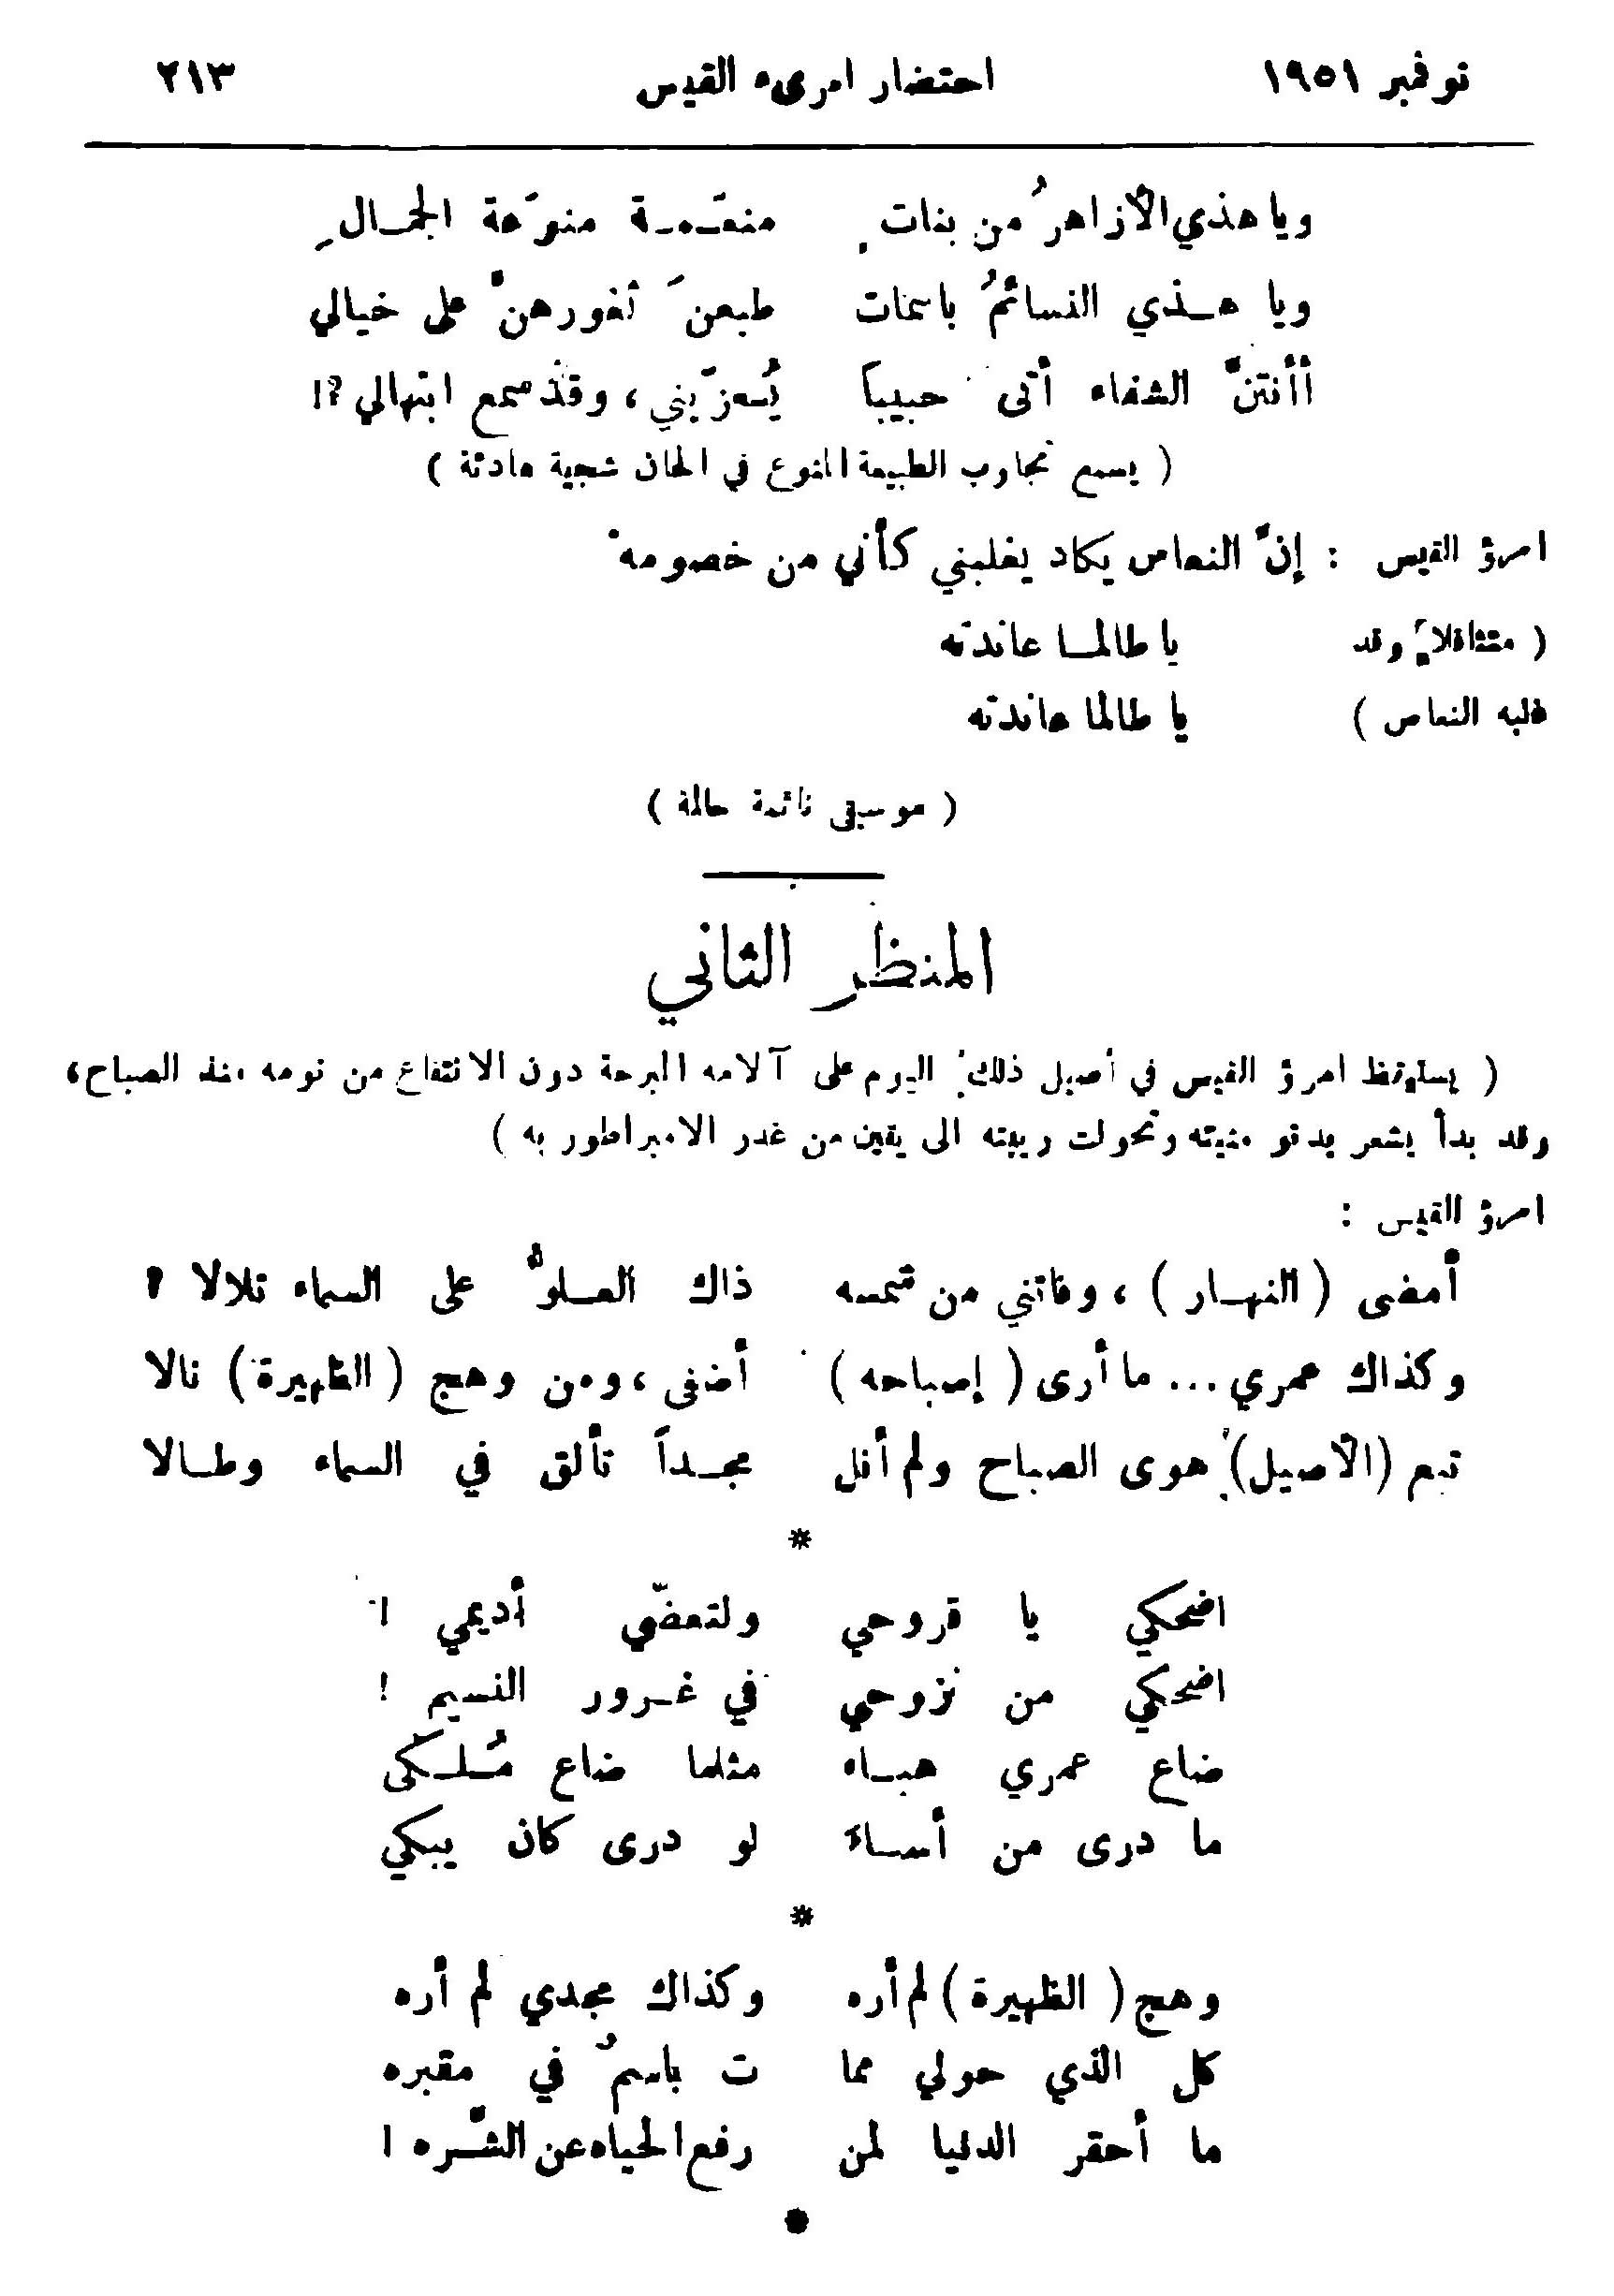 نوفمبر ١٩٥١ احتضار امرىء القيس ٢١٣
ويا هذي الأزاهرُ من بنات منعَّمة منوَّعة الجمالِ
ويا هذي النسائمُ باسمات طبعنَ ثغورهنَّ على خيالي
أأنتنَّ الشفاء أتى حبيباً يُعزّيني، وقد سمع ابتهالي ؟!
( يسمع تجاوب الطبيعة المنوع في الحان شجية هادئة )
امرؤ القيس : إنَّ النعاس يكاد يغلبني كأني من خصومهْ
( متثاقلاً وقد يا طالما عاندته
غلبه النعاس ) يا طالما عاندته
( موسيقى نائمة حالمة )
المنظر الثاني
( يستيقظ امرؤ القيس في أصيل ذلك اليوم على آلامه المبرحة دون الانتفاع من نومه منذ الصباح،
وقد بدأ يشعر بدنو منيته وتحولت ريبته الى يقين من غدر الامبراطور به )
امرؤ القيس :
أمضى ( النهار ) ، وفاتني من شمسه ذاك العلوُّ على السماء تلالا ؟
وكذاك عمري ... ما أرى ( إصباحه ) أضفى ، ومن وهج ( الظهيرة ) نالا
تبع (الأصيل) هوى الصباح ولم أنل مجداً تألق في السماء وطالا
*
اضحكي يا قروحي ولتعضّي أديمي !
اضحكي من نزوحي في غرور النسيم !
ضاع عمري هباء مثلما ضاع مُلكى
ما درى من أساءَ لو درى كان يبكي
*
وهج ( الظهيرة ) لم أره وكذاك مجدي لم أره
كل الذي حولي مما ت باسمُ في مقبره
ما أحقر الدنيا لمن رفع الحياه عن الشَّره !
*